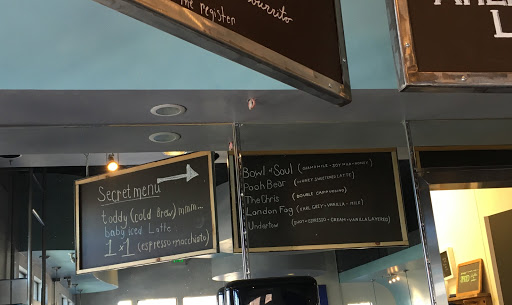 the register
burrito
Secret menu
toddy (cold Brew) mmm...
baby iced Latte
1 x 1 (espresso macchiato)
Bowl of Soul (CHAMOMILE - SOY MILK - HONEY)
Pooh Bear (HONEY SWEETENED LATTE)
The Chris (DOUBLE CAPPUCCINO)
London Fog (EARL GREY - VANILLA - MILK)
Undertow